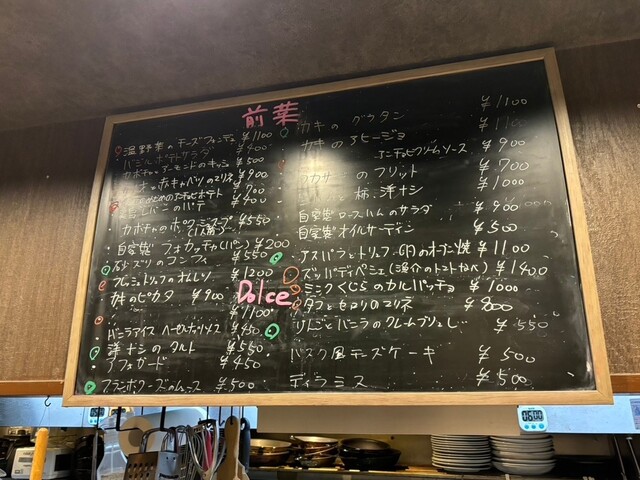 前菜
温野菜のチーズフォンデュ ¥1100
バジルポテトサラダ ¥400
カボチャとアーモンドのキッシュ ¥500
¥900
¥700
鶏レバーのパテ ¥400
カボチャのポタージュスープ ¥550
自家製フォカッチャ(パン) ¥200
砂ズリのコンフィ ¥550
フレッシュトリュフのオムレツ ¥1200
カキのピカタ ¥900
カキのグラタン ¥1100
カキのアヒージョ ¥1100
アンチョビクリームソース ¥900
のフリット ¥700
柿、洋ナシ ¥1000
自家製ロースハムのサラダ ¥900
自家製オイルサーディン ¥500
アスパラとトリュフ、卵のオーブン焼 ¥1100
ズッパディペシェ(魚介のトマトなべ) ¥1400
ミンクくじらのカルパッチョ ¥1000
タコとセロリのマリネ ¥800
Dolce
¥1100
バニラアイス ヘーゼルナッツソース ¥450
洋ナシのタルト ¥550
アフォガード ¥450
フランボワーズのムース ¥500
りんごとバニラのクレームブリュレ ¥550
バスク風チーズケーキ ¥500
ティラミス ¥500
06:00